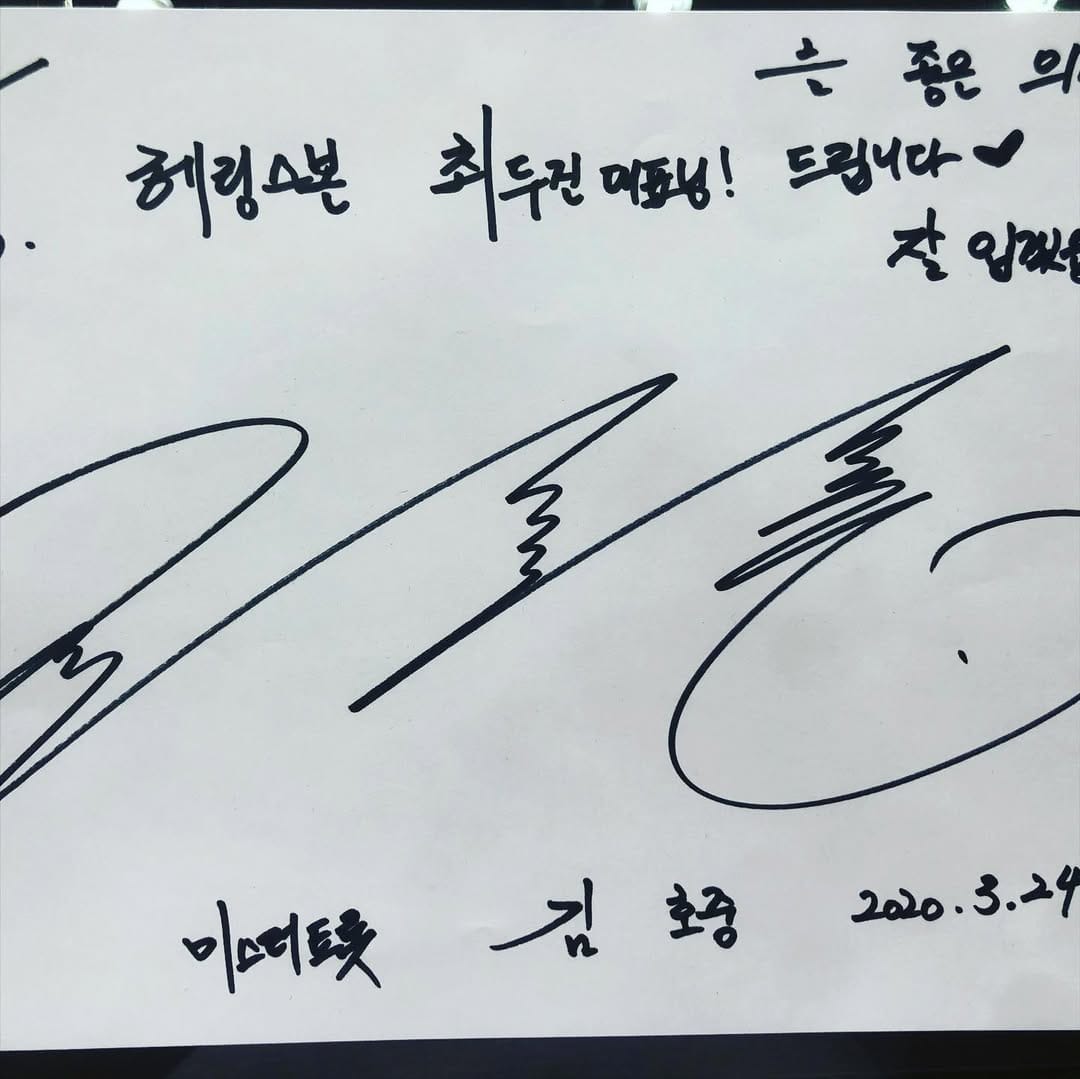 은 좋은 의
헤링스본 최두건 대표님! 드립니다♥
잘 입겠습
미스터트롯 김호중 2020.3.24